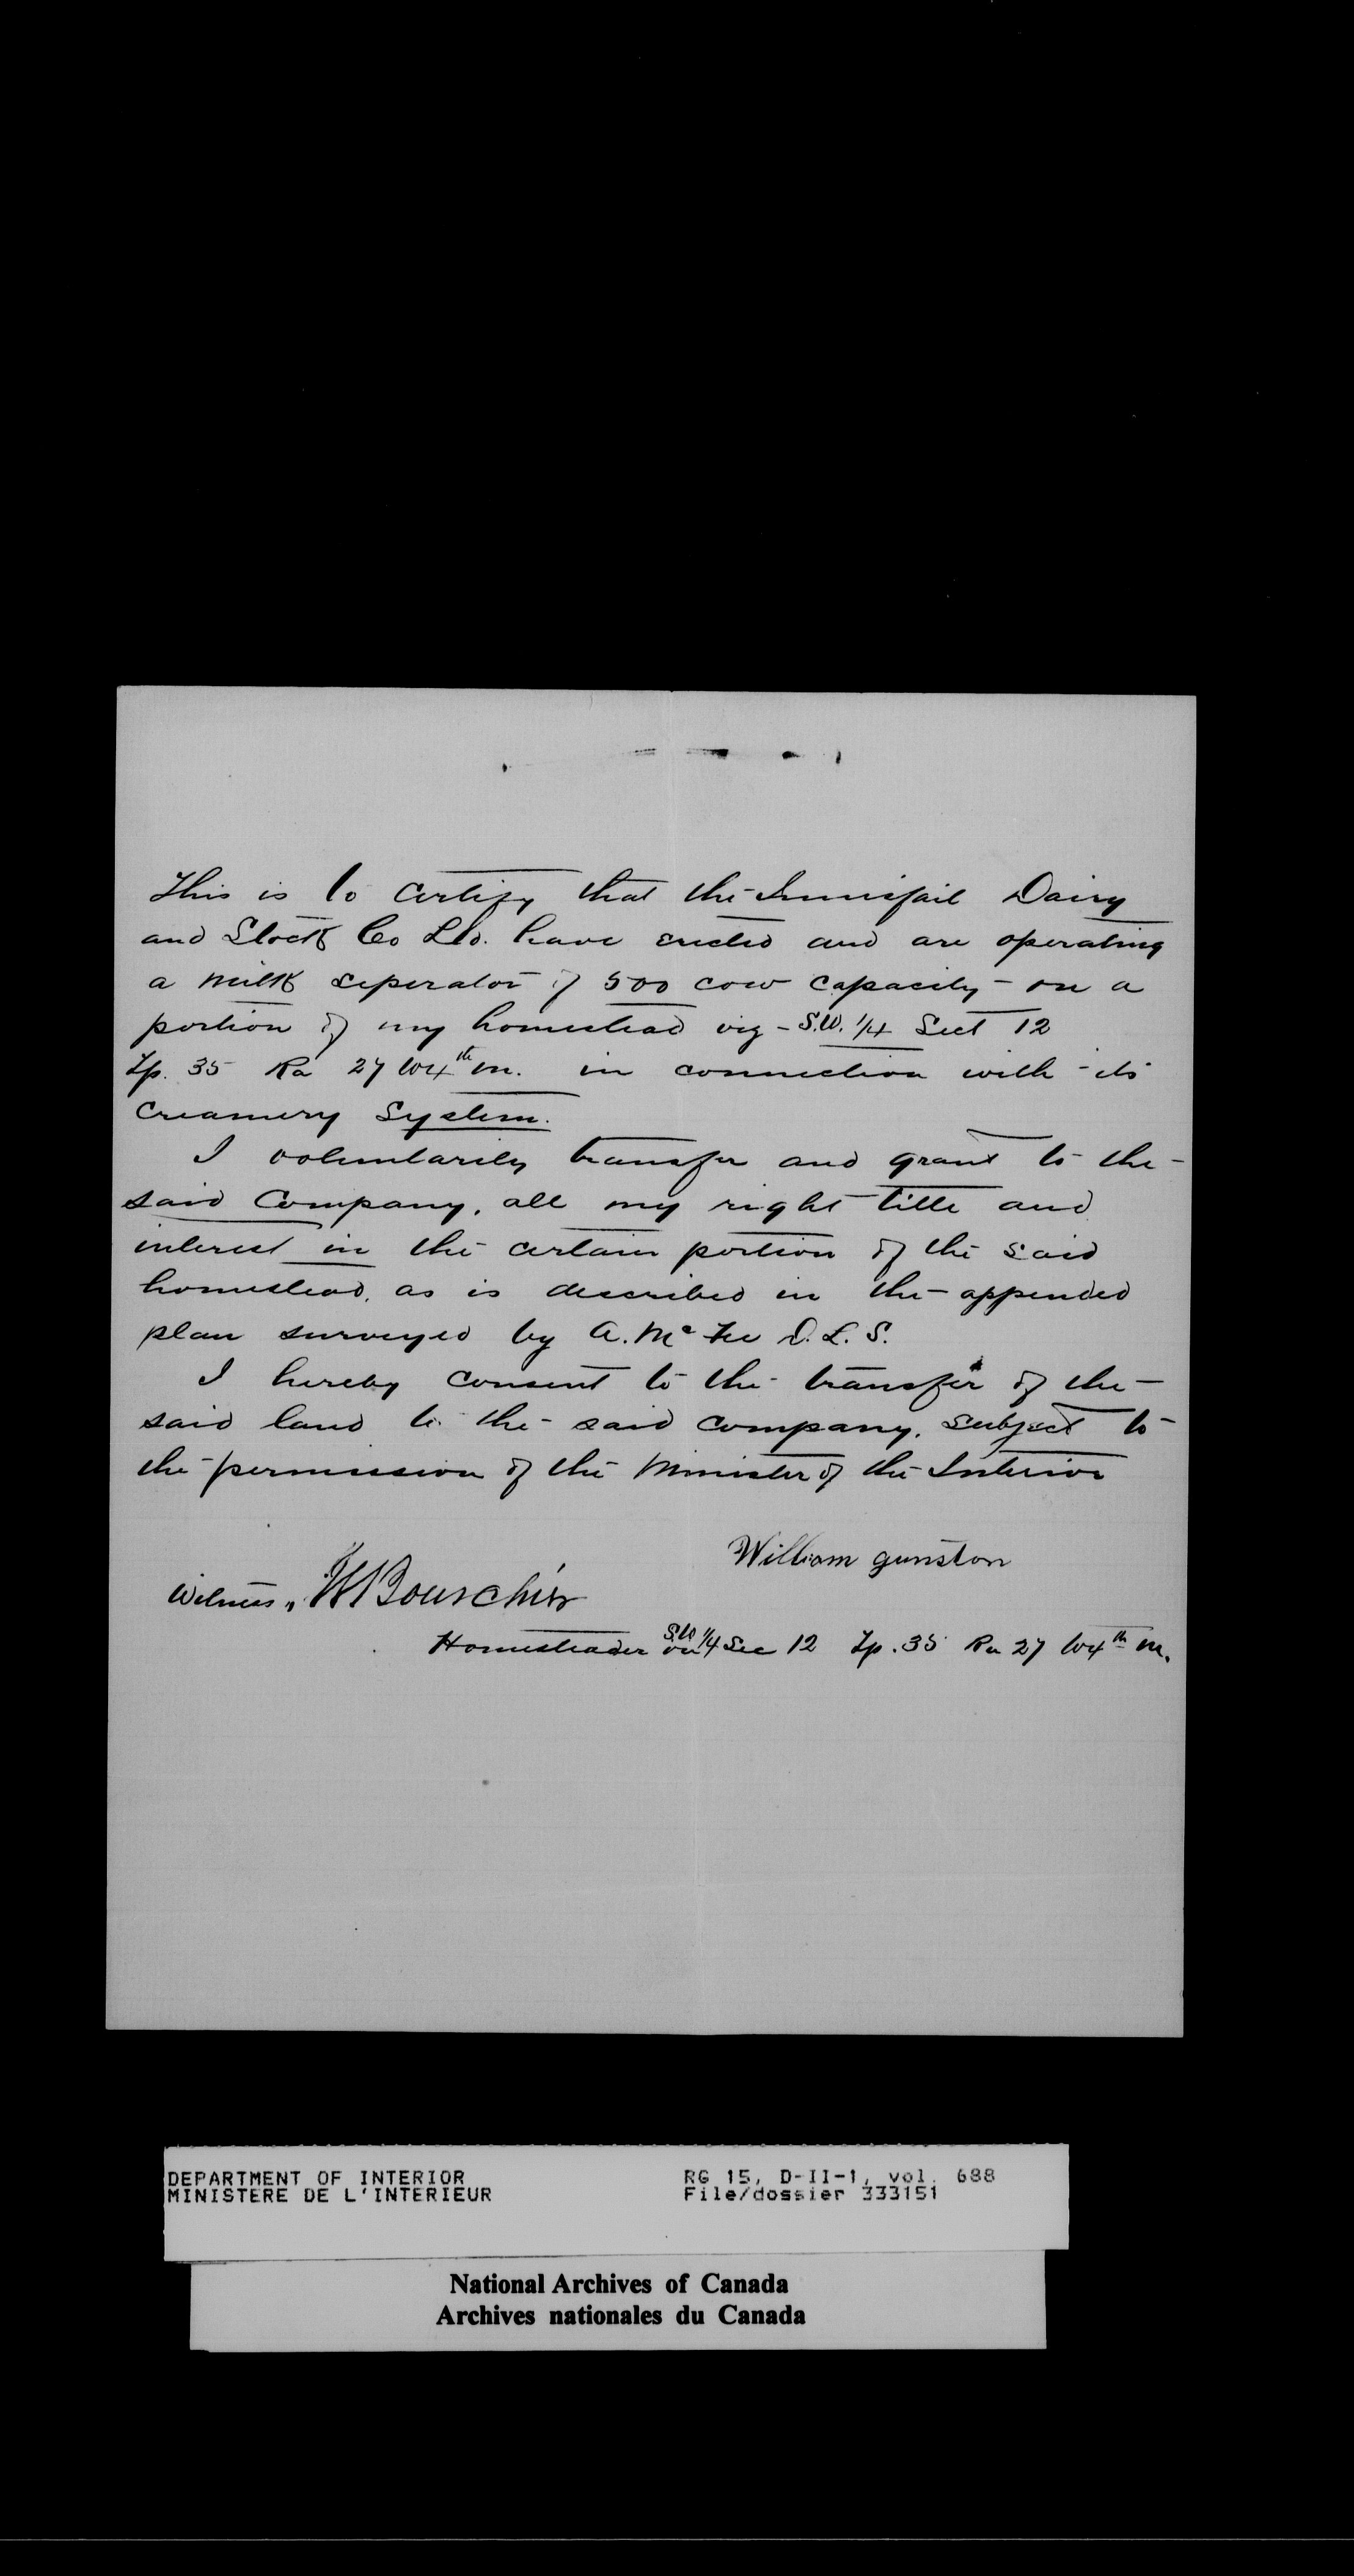 This is to certify that the Innisfail Dairy
and Stock Co Ltd. have erected and are operating
a milk seperator of 500 cow capacity - on a
portion of my homestead viz - S.W. 1/4 Sect 12
Tp. 35 Ra 27 W4th m. in connection with its
Creamery System.
I voluntarily transfer and grant to the
said Company, all my right title and
interest in the certain portion of the said
homestead, as is described in the appended
plan surveyed by A. Mc Fee D.L.S.
I hereby consent to the transfer of the
said land to the said company, subject to
the permission of the Minister of the Interior
William gunston
Witness, Bourchier
Homesteader on S.W 1/4 Sec 12 Tp. 35 Ra 27 W4th m.
DEPARTMENT OF INTERIOR RG 15, D-II-1, vol. 688
MINISTERE DE L'INTERIEUR File/dossier 333151
National Archives of Canada
Archives nationales du Canada